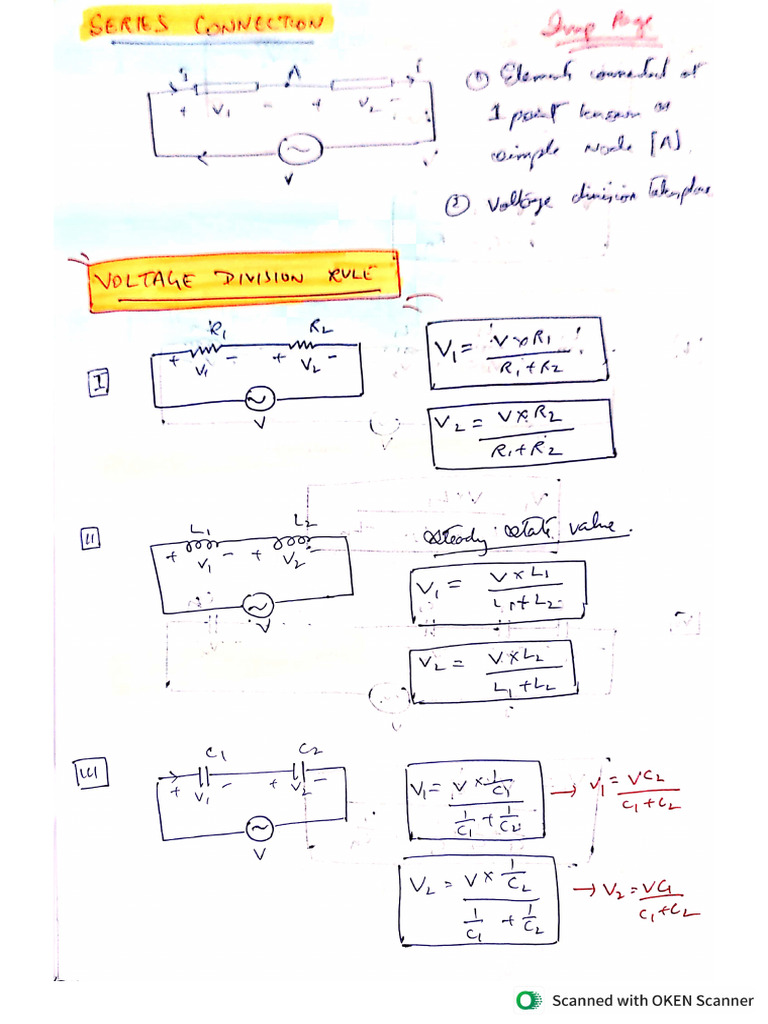 SERIES CONNECTION
Imp Page
i A i
+ V1 - + V2 -
V
① Elements connected at
1 point known as
simple Node [A].
② Voltage division takes place
VOLTAGE DIVISION RULE
I
R1 R2
+ V1 - + V2 -
V
V1 = V×R1 / R1+R2
V2 = V×R2 / R1+R2
II
L1 L2
+ V1 - + V2 -
V
steady state value.
V1 = V×L1 / L1+L2
V2 = V×L2 / L1+L2
III
C1 C2
+ V1 - + V2 -
V
V1 = V×1/C1 / 1/C1 + 1/C2 → V1 = VC2 / C1+C2
V2 = V×1/C2 / 1/C1 + 1/C2 → V2 = VC1 / C1+C2
Scanned with OKEN Scanner